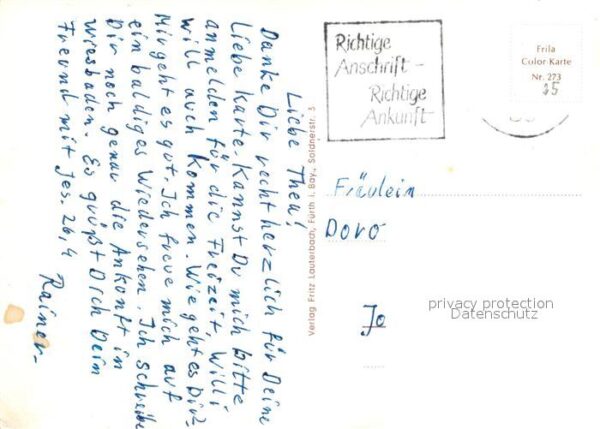 Liebe Thea!
Danke Dir recht herzlich für Deine
Liebe Karte. Kannst Du mich bitte
anmelden für die Freizeit, Willi
will auch kommen. Wie geht es Dir?
Mir geht es gut. Ich freue mich auf
ein baldiges Wiedersehen. Ich schreibe
Dir noch genau die Ankunft in
Wiesbaden. Es grüßt Dich Dein
Freund mit Jes. 26,4
Rainer.
Verlag Fritz Lauterbach, Fürth i. Bay., Soldnerstr. 3
Richtige
Anschrift –
Richtige
Ankunft
Frila
Color-Karte
Nr. 273
35
Fräulein
Doro
Jo
privacy protection
Datenschutz